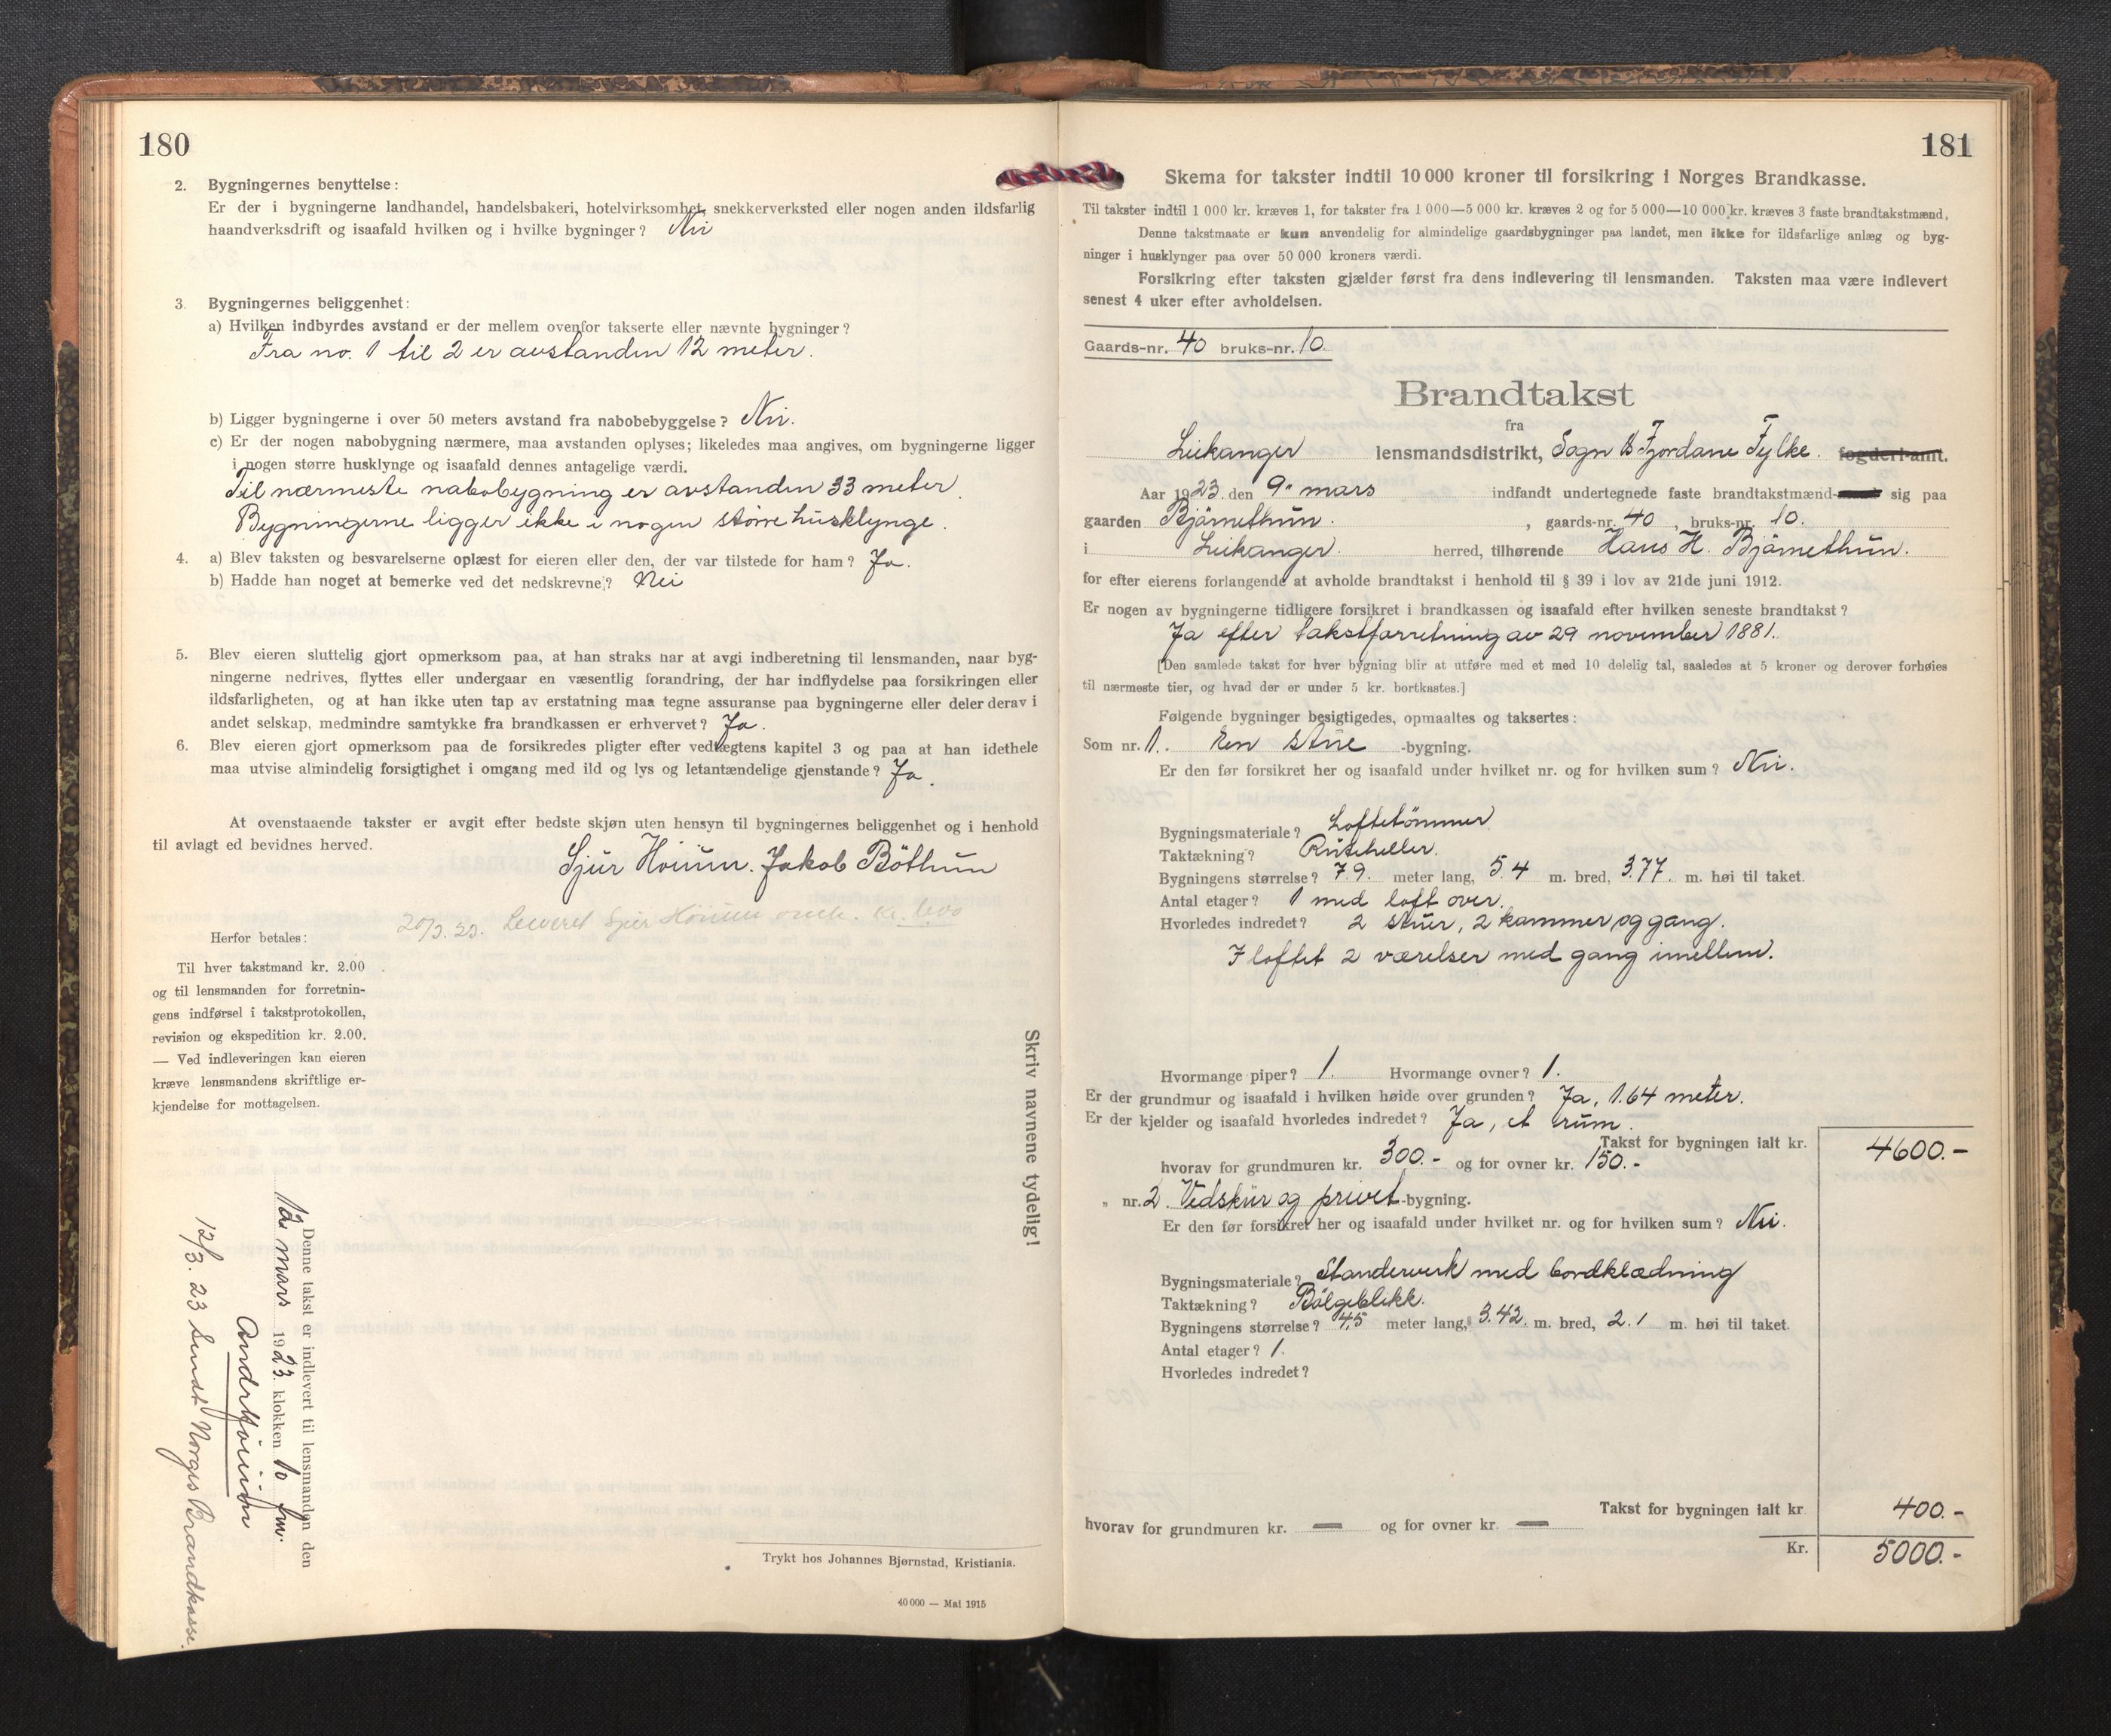 180
2. Bygningernes benyttelse:
Er der i bygningerne landhandel, handelsbakeri, hotelvirksomhet, snekkerverksted eller nogen anden ildsfarlig
haandverksdrift og isaafald hvilken og i hvilke bygninger? Nei
3. Bygningernes beliggenhet:
a) Hvilken indbyrdes avstand er der mellem ovenfor takserte eller nævnte bygninger?
Fra no. 1 til 2 er avstanden 12 meter.
b) Ligger bygningerne i over 50 meters avstand fra nabobebyggelse? Nei.
c) Er der nogen nabobygning nærmere, maa avstanden oplyses; likeledes maa angives, om bygningerne ligger
i nogen større husklynge og isaafald dennes antagelige værdi.
Til nærmeste nabobygning er avstanden 33 meter.
Bygningerne ligger ikke i nogen större husklynge.
4. a) Blev taksten og besvarelserne oplæst for eieren eller den, der var tilstede for ham? Ja.
b) Hadde han noget at bemerke ved det nedskrevne? Nei
5. Blev eieren sluttelig gjort opmerksom paa, at han straks har at avgi indberetning til lensmanden, naar byg-
ningerne nedrives, flyttes eller undergaar en væsentlig forandring, der har indflydelse paa forsikringen eller
ildsfarligheten, og at han ikke uten tap av erstatning maa tegne assuranse paa bygningerne eller deler derav i
andet selskap, medmindre samtykke fra brandkassen er erhvervet? Ja.
6. Blev eieren gjort opmerksom paa de forsikredes pligter efter vedtægtens kapitel 3 og paa at han idethele
maa utvise almindelig forsigtighet i omgang med ild og lys og letantændelige gjenstande? Ja.
At ovenstaaende takster er avgit efter bedste skjøn uten hensyn til bygningernes beliggenhet og i henhold
til avlagt ed bevidnes herved.
Sjur Höium. Jakob Böthun
20/3. 23. Leveret Sjur Höium kr. 6.00
Herfor betales:
Til hver takstmand kr. 2.00
og til lensmanden for forretnin-
gens indførsel i takstprotokollen,
revision og ekspedition kr. 2.00.
— Ved indleveringen kan eieren
kræve lensmandens skriftlige er-
kjendelse for mottagelsen.
Skriv navnene tydelig!
Denne takst er indlevert til lensmanden den
12 mars 1923 klokken 10 fm.
12/3. 23 Sendt Norges Brandkasse.
Trykt hos Johannes Bjørnstad, Kristiania.
40 000 — Mai 1915
181
Skema for takster indtil 10 000 kroner til forsikring i Norges Brandkasse.
Til takster indtil 1 000 kr. kræves 1, for takster fra 1 000—5 000 kr. kræves 2 og for 5 000—10 000 kr. kræves 3 faste brandtakstmænd.
Denne takstmaate er kun anvendelig for almindelige gaardsbygninger paa landet, men ikke for ildsfarlige anlæg og byg-
ninger i husklynger paa over 50 000 kroners værdi.
Forsikring efter taksten gjælder først fra dens indlevering til lensmanden. Taksten maa være indlevert
senest 4 uker efter avholdelsen.
Gaards-nr. 40 bruks-nr. 10
Brandtakst
fra
Leikanger lensmandsdistrikt, Sogn & Fjordane Fylke. fogderi-amt.
Aar 1923 den 9. mars indfandt undertegnede faste brandtakstmænd sig paa
gaarden Bjärnethun., gaards-nr. 40, bruks-nr. 10.
i Leikanger. herred, tilhørende Hans H. Bjärnethun.
for efter eierens forlangende at avholde brandtakst i henhold til § 39 i lov av 21de juni 1912.
Er nogen av bygningerne tidligere forsikret i brandkassen og isaafald efter hvilken seneste brandtakst?
Ja efter takstforretning av 29 november 1881.
[Den samlede takst for hver bygning blir at utføre med et med 10 delelig tal, saaledes at 5 kroner og derover forhøies
til nærmeste tier, og hvad der er under 5 kr. bortkastes.]
Følgende bygninger besigtigedes, opmaaltes og taksertes:
Som nr. 1. Een stue -bygning.
Er den før forsikret her og isaafald under hvilket nr. og for hvilken sum? Nei.
Bygningsmateriale? Loftetömmer
Taktækning? Ruteheller.
Bygningens størrelse? 7.9. meter lang, 5.4 m. bred, 3.77. m. høi til taket.
Antal etager? 1 med loft over.
Hvorledes indredet? 2 stuer, 2 kammer og gang.
I loftet 2 værelser med gang imellem.
Hvormange piper? 1. Hvormange ovner? 1.
Er der grundmur og isaafald i hvilken høide over grunden? Ja, 1.64 meter.
Er der kjelder og isaafald hvorledes indredet? Ja, et rum.
Takst for bygningen ialt kr. 4600.-
hvorav for grundmuren kr. 300.- og for ovner kr. 150.-
„ nr. 2. Vedskur og privet -bygning.
Er den før forsikret her og isaafald under hvilket nr. og for hvilken sum? Nei.
Bygningsmateriale? Standerverk med bordklædning
Taktækning? Bölgeblikk.
Bygningens størrelse? 4,5 meter lang, 3.42. m. bred, 2.1 m. høi til taket.
Antal etager? 1.
Hvorledes indredet?
Takst for bygningen ialt kr 400.-
hvorav for grundmuren kr. — og for ovner kr. —
Kr. 5000.-